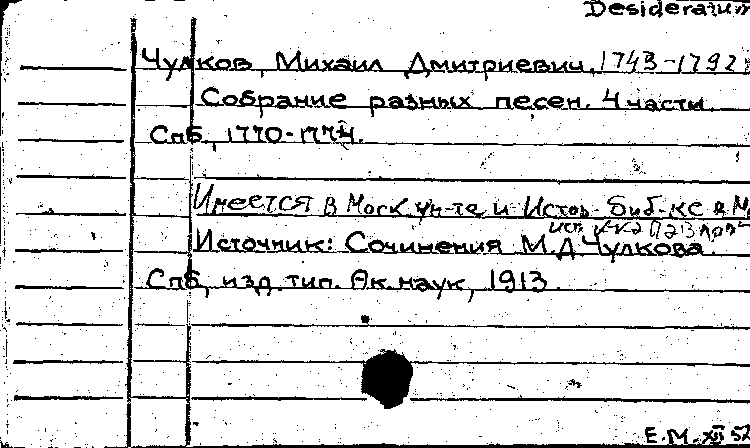 Desideratum
Чулков, Михаил Дмитриевич, 1743-1792
Собрание разных песен. 4 части.
Спб., 1770-1774.
Имеется в Моск ун-та и Истор. биб-ке в М.
Источник: Сочинения М.Д.Чулкова.
Спб, изд. тип. Ак. наук, 1913.
Е.М. XII 52